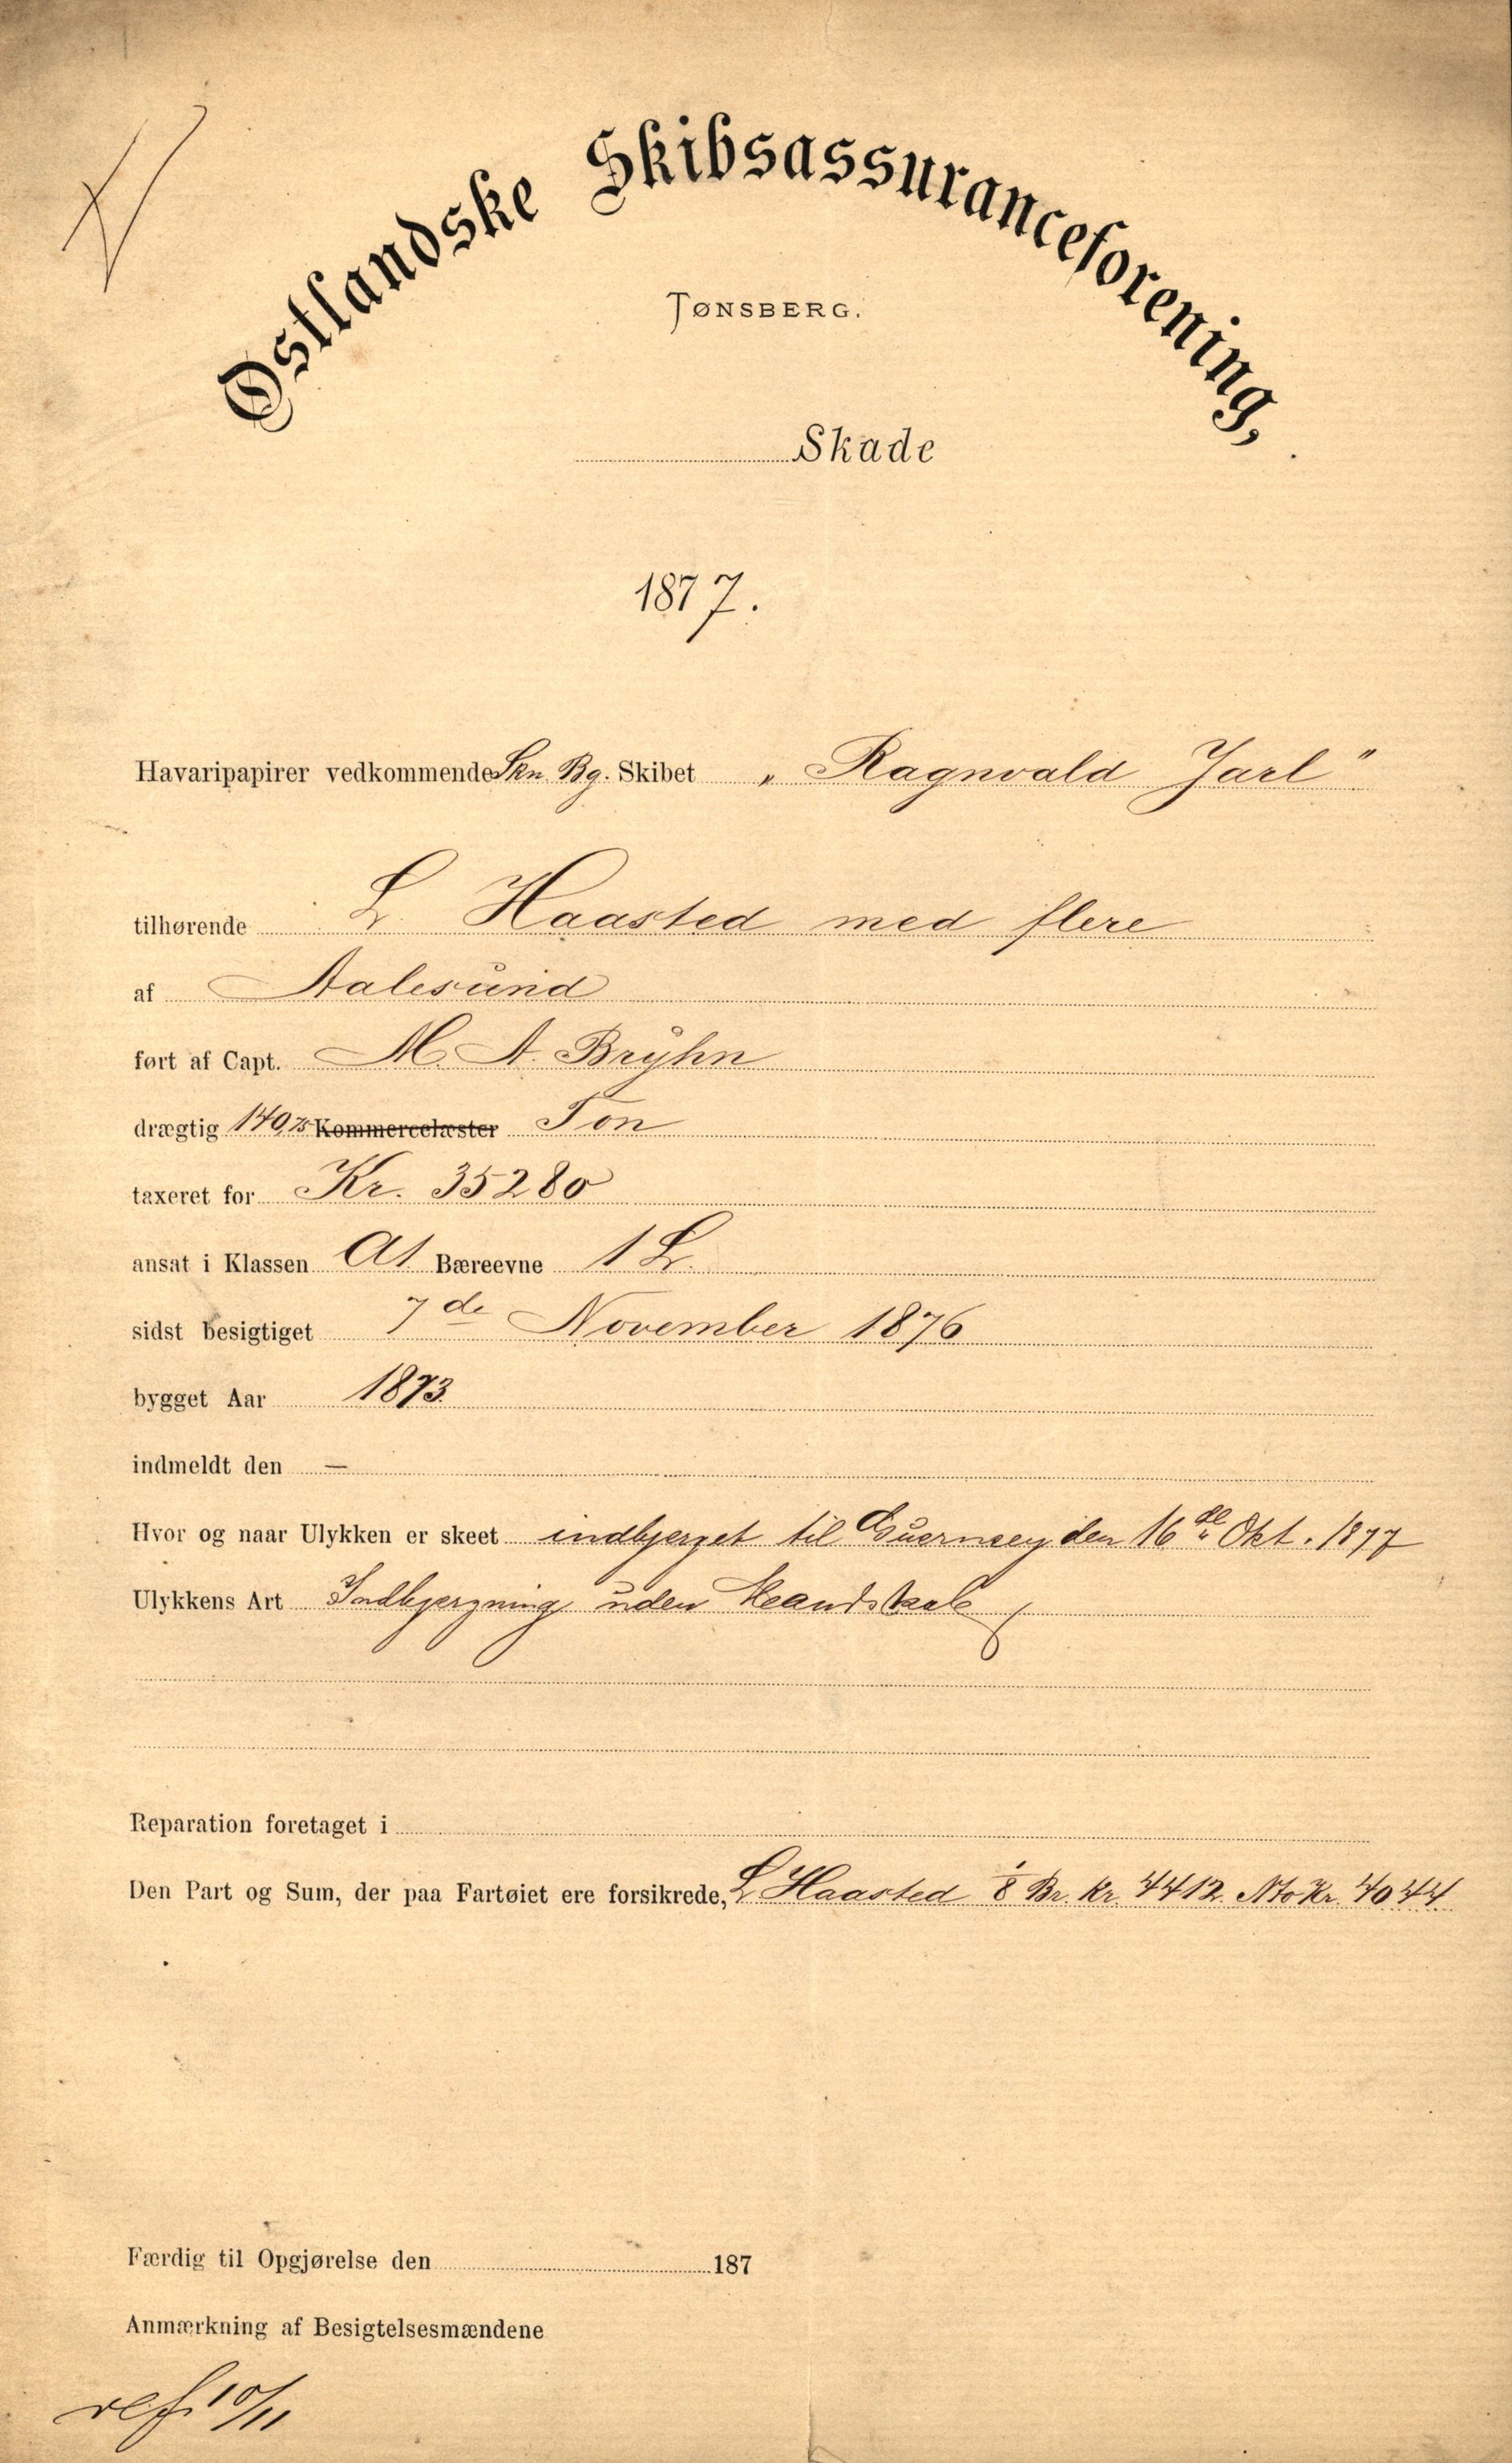 Østlandske Skibsassuranceforening,
TØNSBERG.
Skade
1877.
Havaripapirer vedkommende Skn. Bg. Skibet „Ragnvald Jarl"
tilhørende L. Haasted med flere
af Aalesund
ført af Capt. M. A. Bryhn
drægtig 140,75 Kommercelæster Ton
taxeret for Kr. 35280
ansat i Klassen A1 Bæreevne 1 L.
sidst besigtiget 7de November 1876
bygget Aar 1873.
indmeldt den —
Hvor og naar Ulykken er skeet indbjerget til Guernsey den 16de Okt. 1877
Ulykkens Art Indbjergning uden Mandskab
Reparation foretaget i
Den Part og Sum, der paa Fartøiet ere forsikrede, L. Haasted 1/8 Br. Kr. 4412. Nto Kr. 4044.
Færdig til Opgjørelse den 187
Anmærkning af Besigtelsesmændene
ref. 10/11